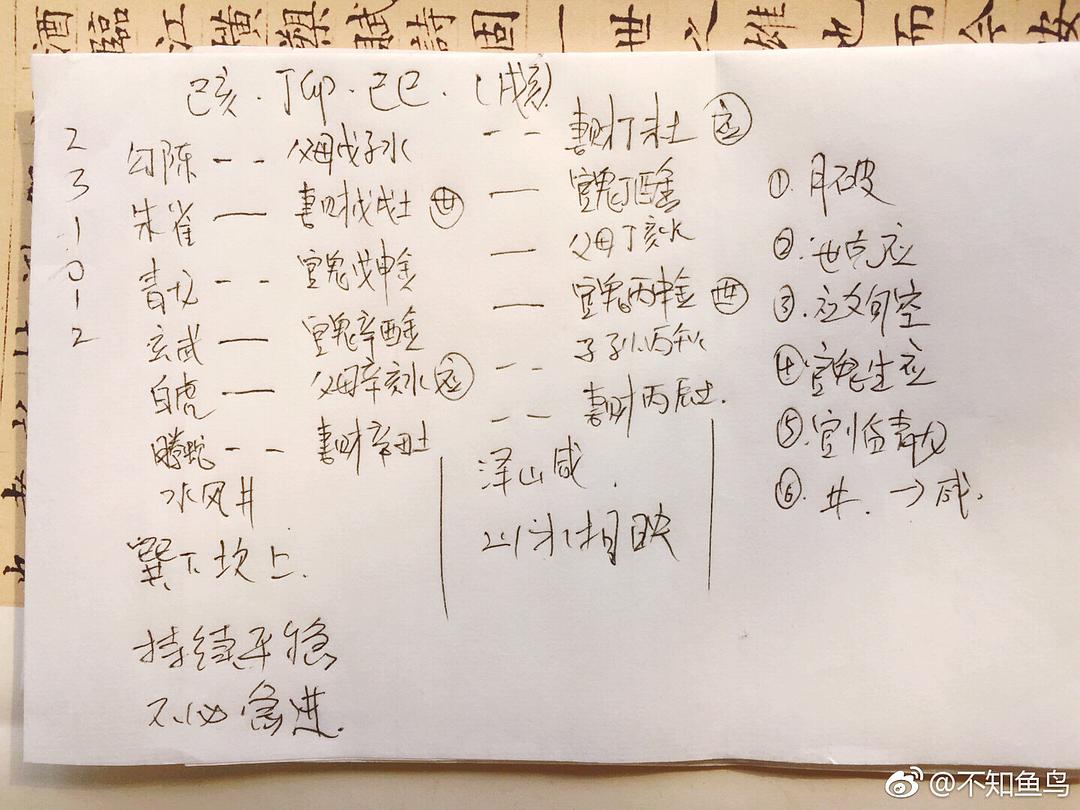 酒臨江橫槊賦詩固一世之雄也而今安
己亥·丁卯·己巳·(戌亥)
2 勾陈 -- 父母戊子水 -- 妻财丁未土 应
3 朱雀 — 妻财戊戌土 世 — 官鬼丁酉金
1 青龙 -- 官鬼戊申金 — 父母丁亥水
0 玄武 — 官鬼辛酉金 — 官鬼丙申金 世
1 白虎 — 父母辛亥水 应 -- 子孙丙午火
2 螣蛇 -- 妻财辛丑土 -- 妻财丙辰土.
① 月破
② 世克应
③ 应爻旬空
④ 官鬼生应
⑤ 官临青龙
⑥ 井. → 咸.
水风井.
巽下坎上.
泽山咸.
山水相映
持续平稳
不必急进.
@不知鱼鸟